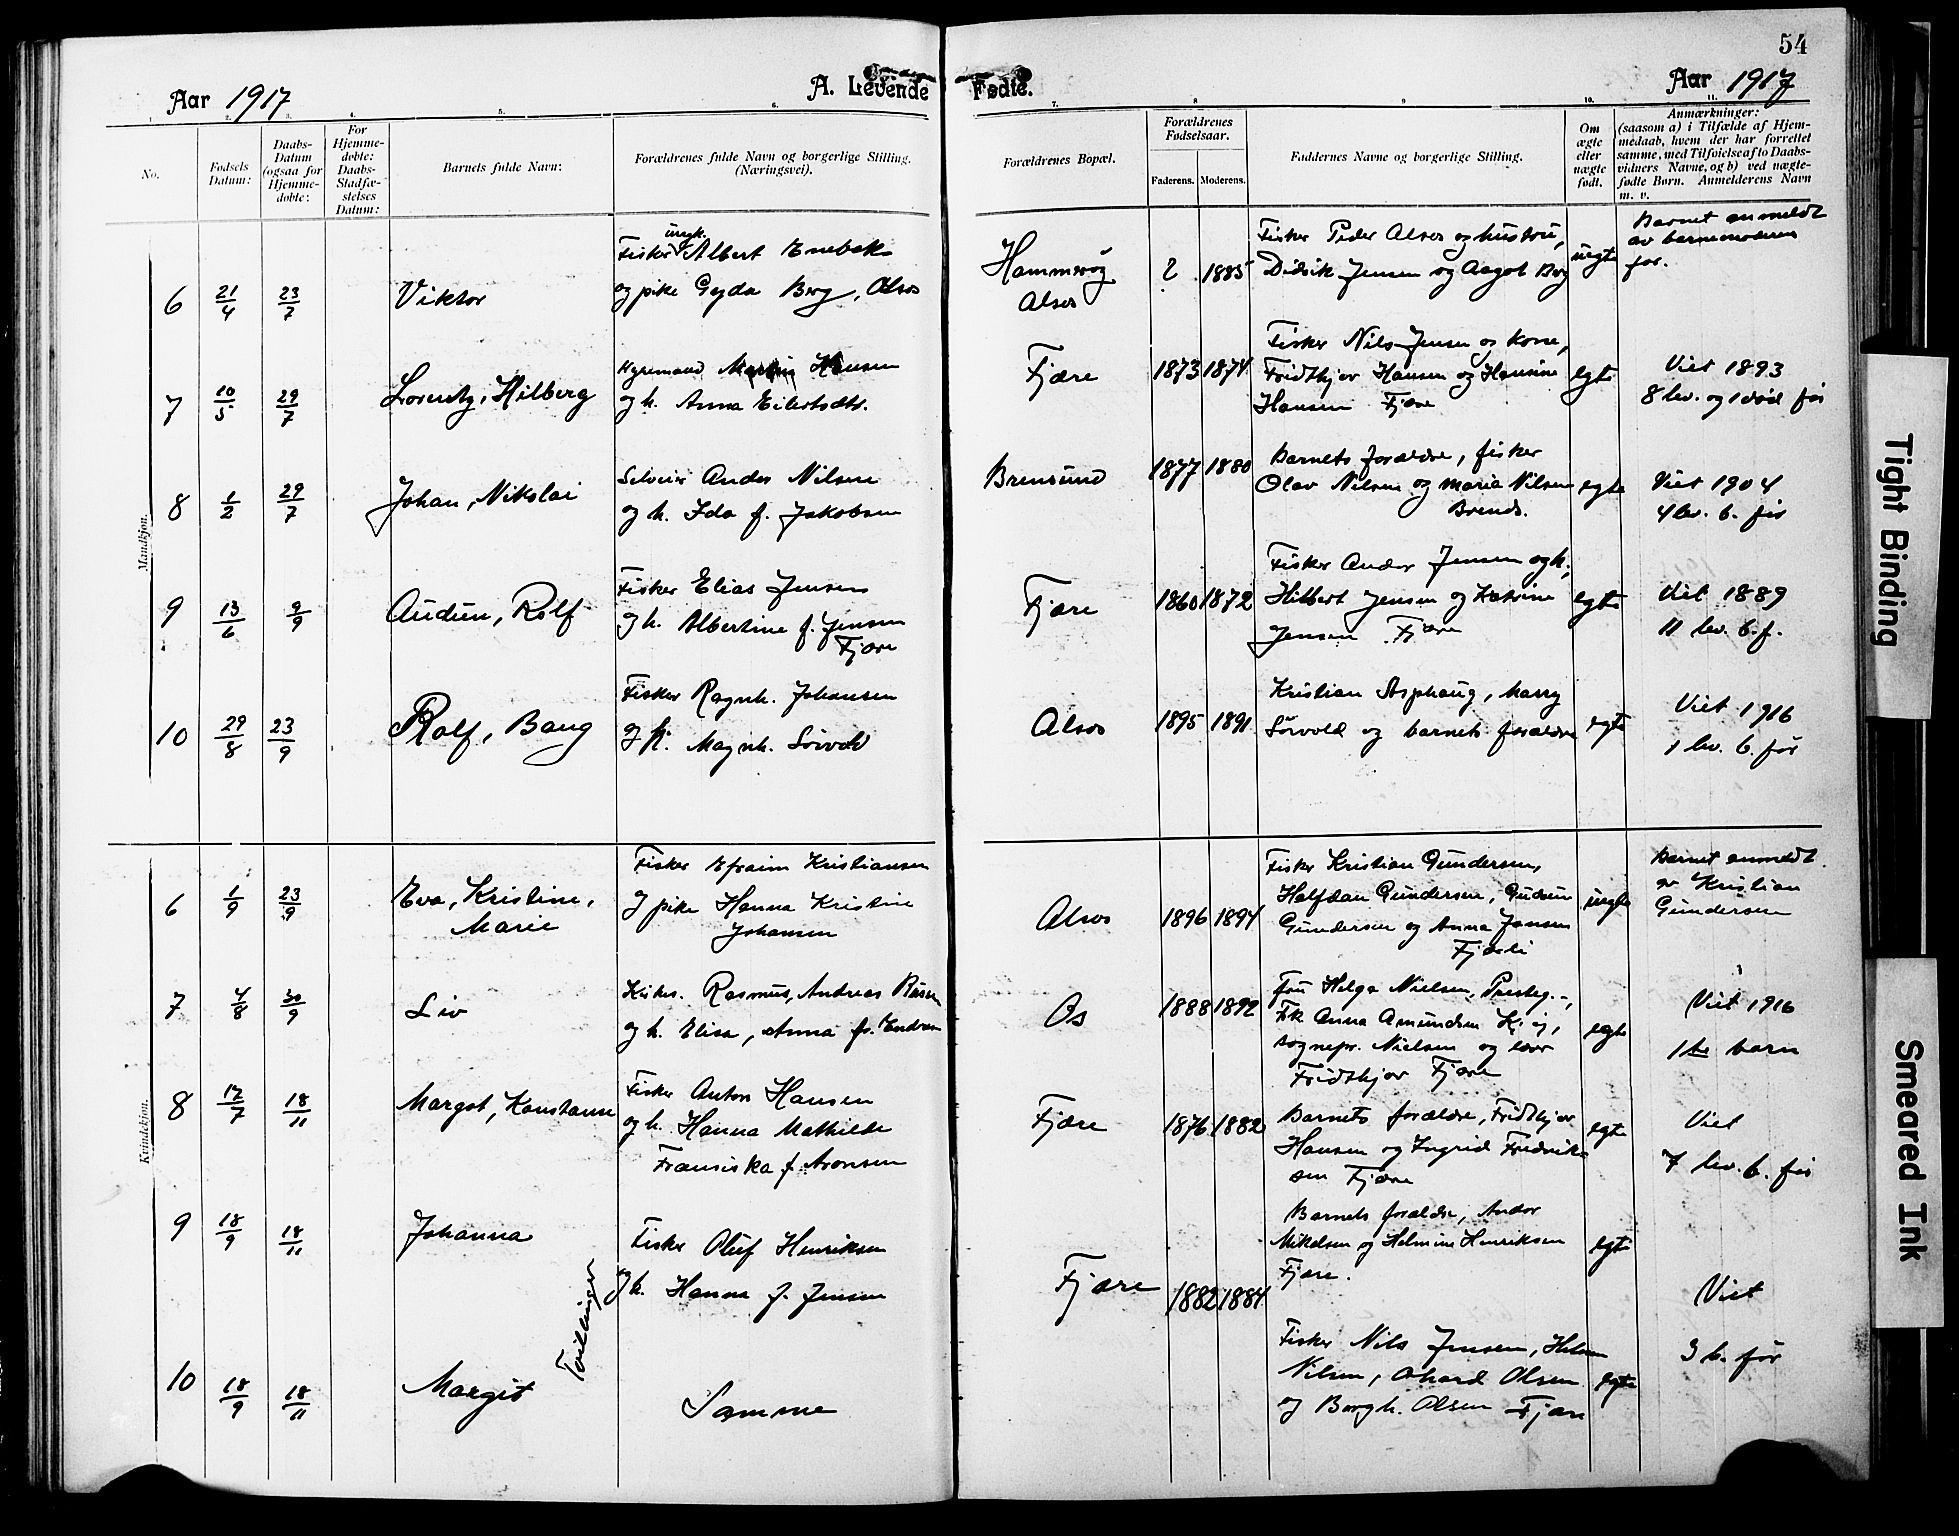 54
Aar 1917
A. Levende Fødte.
Aar 1917
1. 2. 3. 4. 5. 6. 7. 8. 9. 10. 11.
No.
Fødsels Datum:
Daabs-Datum (ogsaa for Hjemme-døbte:
For Hjemme-døbte: Daabs-Stadfæ-stelses Datum:
Barnets fulde Navn:
Forældrenes fulde Navn og borgerlige Stilling. (Næringsvei).
Forældrenes Bopæl.
Forældrenes Fødselsaar.
Faderens. Moderens.
Faddernes Navne og borgerlige Stilling.
Om ægte eller nægte født.
Anmærkninger: (saasom a) i Tilfælde af Hjem-medaab, hvem der har forrettet samme, med Tilføielse af to Daabs-vidners Navne, og b) ved nægte-fødte Børn. Anmelderens Navn m. v.
Mandkjøn.
6 21/4 23/7 Viktor
Fisker ungk. Albert Enebak
og pike Gyda Berg, Alsos
Hammevog
Alsos
? 1885
Fisker Peder Alsos og hustru,
Didrik Jensen og Aagot Berg
uegte
Barnet anmeldt
av barnemoderens
far.
7 10/5 29/7 Lorentz, Hilberg
Hansen
og h. Anna Eilertsdtr.
Fjære
1873 1874
Fisker Nils Jensen og kone,
Fridthjov Hansen og Hansine
Hansen Fjære
egte
Viet 1893
8 lev. og 1 død før
8 1/2 29/7 Johan, Nikolai
Selveier Andor Nilsen
og h. Ida f. Jakobsen
Brensund
1877 1880
Barnets forældre, fisker
Olav Nilsen og Maria Nilsen
Brends.
egte
Viet 1904
4 lev. b. før
9 13/6 9/9 Audun, Rolf
Fisker Elias Jensen
og h. Albertine f. Jensen
Fjære
Fjære
1860 1872
Fisker Andor Jensen og h.,
Hilbert Jensen og Katrine
Jensen Fjære
egte
Viet 1889
11 lev. b. f.
10 29/8 23/9 Rolf, Bang
Fisker Ragnh. Johansen
og h. Magnh. Sørvold
Alsos
1895 1891
Kristian Asphaug, Marry
Sørvold og barnets forældre
egte
Viet 1916
1 lev. b. før
Kvindekjøn.
6 1/9 23/9 Eva, Kristine,
Marie
Fisker Efraim Kristiansen
og pike Hanna Kristine
Johansen
Alsos
1896 1894
Fisker Kristian Gundersen,
Halfdan Gundersen, Gudrun
Gundersen og Anna Jansen
Fjærli
uegte
Barnet anmeldt
av Kristian
Gundersen
7 4/8 30/9 Liv
Rasmus, Andreas
og h. Elise, Anna
Os
1888 1892
fru Helga Nielsen, Presteg.,
Frk Anna Amundsen
sognepr. Nielsen og lærer
Fridthjov Fjære
egte
Viet 1916
1te barn
8 12/7 18/11 Margot, Konstanse
Fisker Anton Hansen
og h. Hanna Mathilde
Fransiska f. Aronsen
Fjære
1876 1882
Barnets forældre, Fridthjov
Hansen og Ingrid Fredrik-
sen Fjære
egte
Viet
7 lev. b. før
9 18/9 18/11 Johanna
Fisker Oluf Henriksen
og h. Hanna f. Jensen
Fjære
1882 1884
Barnets forældre, Andor
Mikelsen og Helmine Henriksen
Fjære.
egte
Viet
3 b. før
Tvillinger
10 18/9 18/11 Margit
Samme
Fisker Nils Jensen,
Nilsen, Olsen
og Borgh. Olsen Fjære
egte
Tight Binding
Smeared Ink